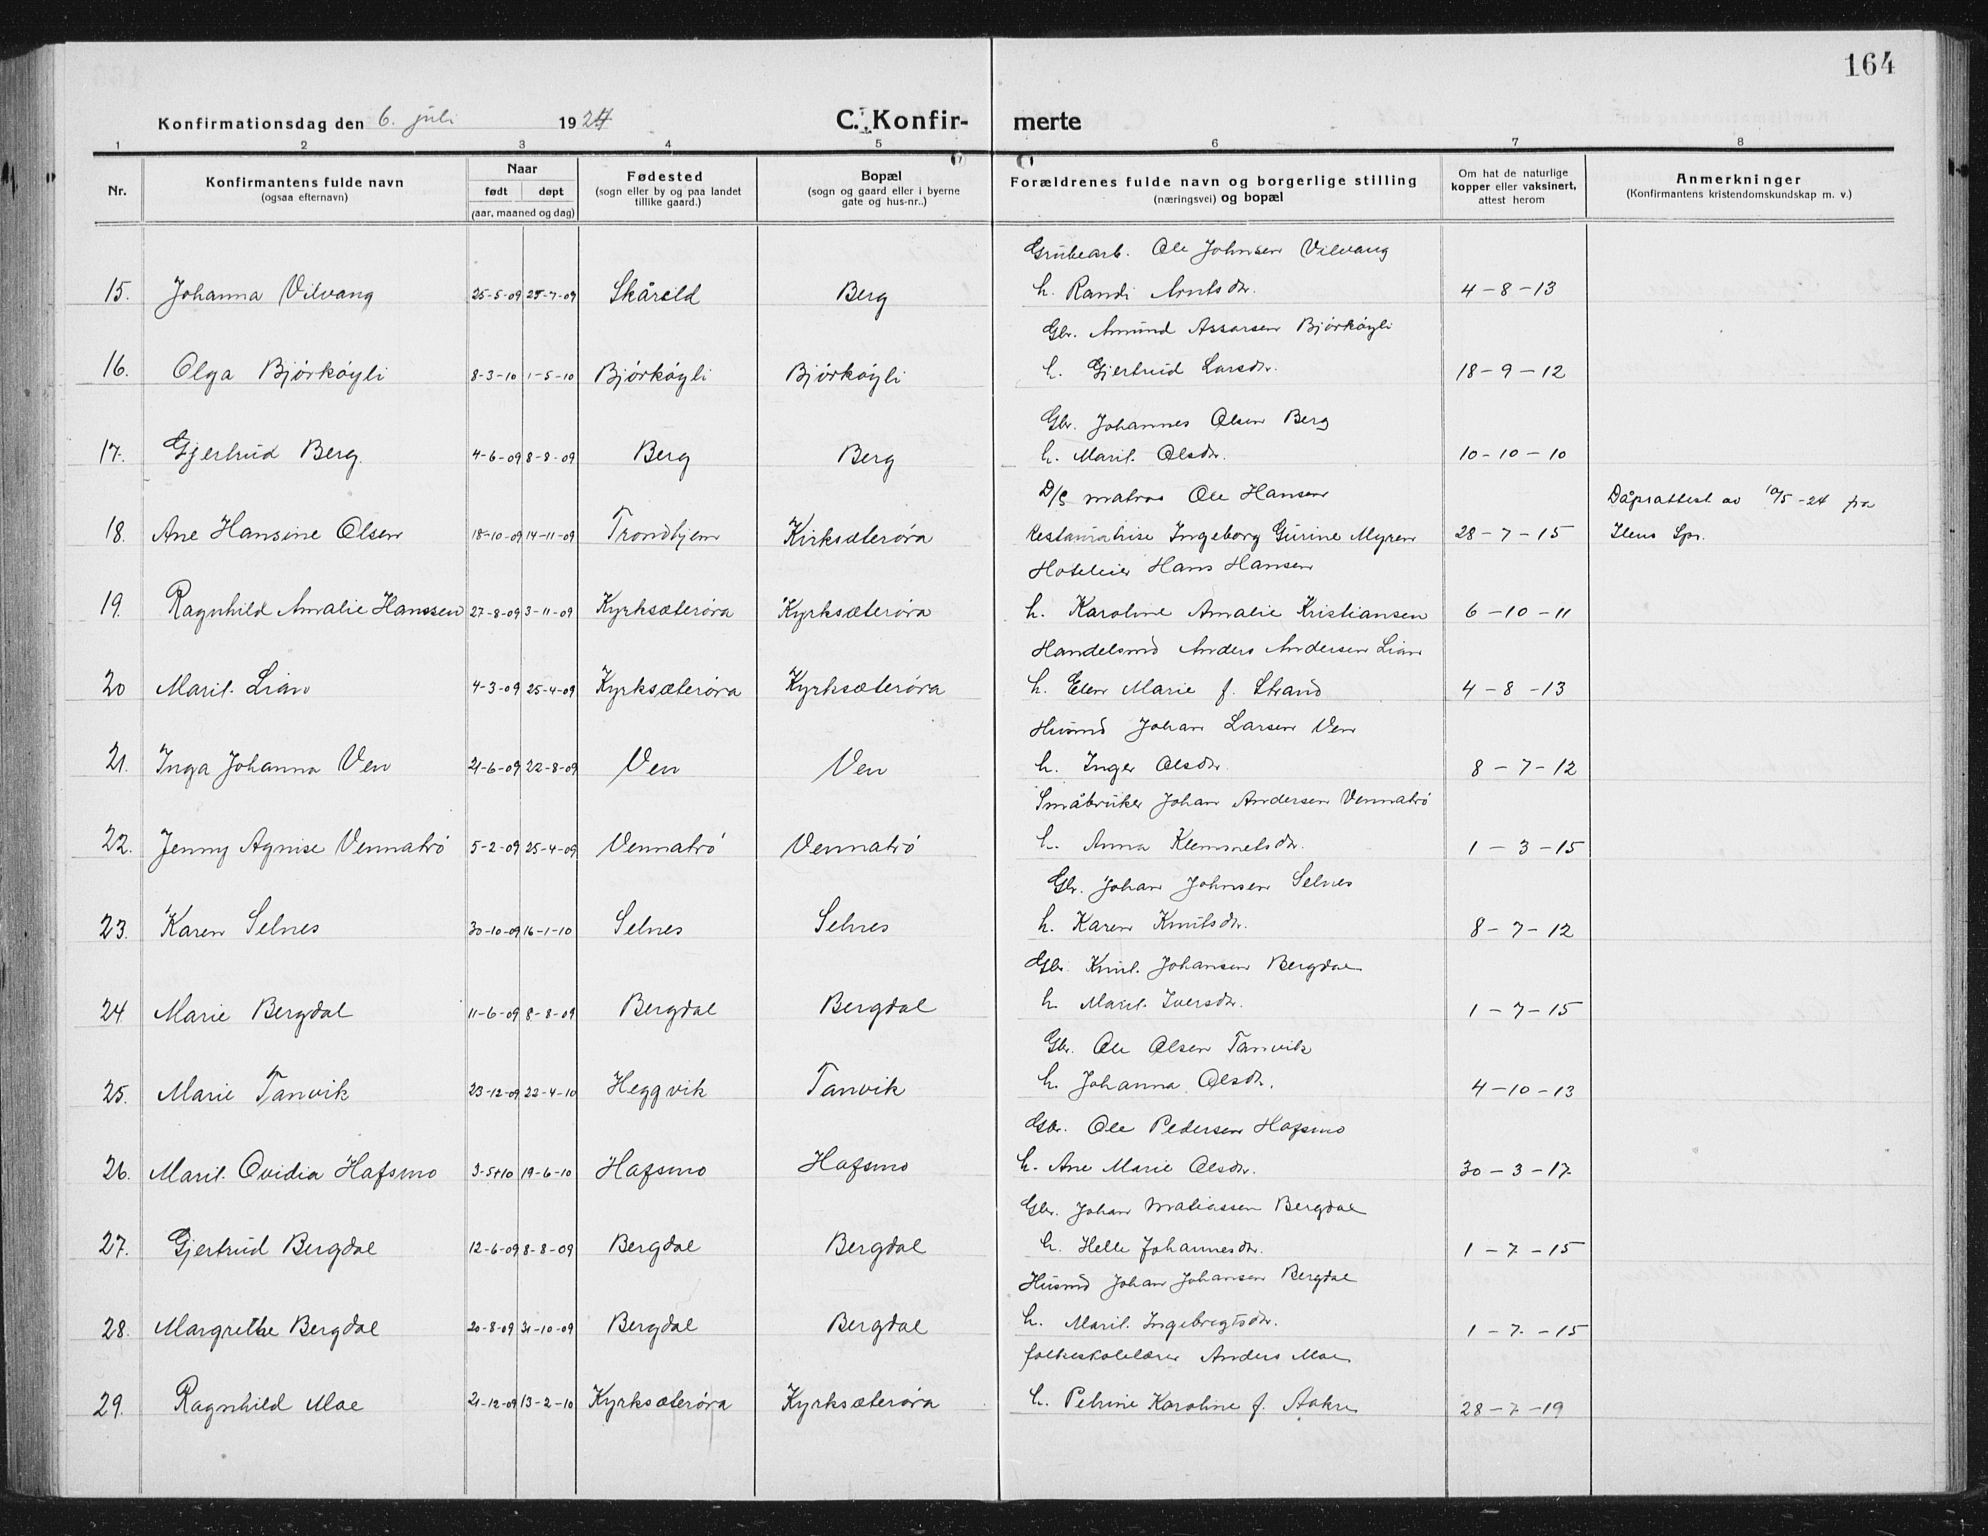 164
Konfirmationsdag den 6. juli 1924 C. Konfir- merte
1 2 3 4 5 6 7 8
Nr. Konfirmantens fulde navn (ogsaa efternavn) Naar født døpt (aar, maaned og dag) Fødested (sogn eller by og paa landet tillike gaard.) Bopæl (sogn og gaard eller i byerne gate og hus-nr..) Forældrenes fulde navn og borgerlige stilling (næringsvei) og bopæl Om hat de naturlige kopper eller vaksinert, attest herom Anmerkninger (Konfirmantens kristendomskundskap m. v.)
Grubearb. Ole Johnsen Vilvang
15. Johanna Vilvang 25-5-09 25-7-09 Skårild Berg h. Randi Arntsdr. 4-8-13
Gbr. Amund Assarsen Bjørkøyli
16. Olga Bjørkøyli 8-3-10 1-5-10 Bjørkøyli Bjørkøyli h. Gjertrud Larsdr. 18-9-12
Gbr. Johannes Olsen Berg
17. Gjertrud Berg. 4-6-09 8-8-09 Berg Berg h. Marit Olsdr. 10-10-10
D/S matros Ole Hansen Dåpsattest av 10/5-24 fra
18. Ane Hansine Olsen 18-10-09 14-11-09 Trondhjem Kirksæterøra Restauratrise Ingeborg Gurine Myren 28-7-15 Ilens Spr.
Hoteleier Hans Hansen
19. Ragnhild Amalie Hanssen 27-8-09 3-11-09 Kyrksæterøra Kyrksæterøra h. Karoline Amalie Kristiansen 6-10-11
Handelsmd Anders Andersen Lian
20 Marit Lian 4-3-09 25-4-09 Kyrksæterøra Kyrksæterøra h. Elen Marie f. Strand 4-8-13
Husmd Johan Larsen Ven
21. Inga Johanna Ven 21-6-09 22-8-09 Ven Ven h. Inger Olsdr. 8-7-12
Småbruker Johan Andersen Vennatrø
22. Jenny Agnise Vennatrø 5-2-09 25-4-09 Vennatrø Vennatrø h. Anna Klemmetsdr. 1-3-15
Gbr. Johan Johnsen Selnes
23. Karen Selnes 30-10-09 16-1-10 Selnes Selnes h. Karen Knutsdr. 8-7-12
Gbr. Knut Johansen Bergdal
24 Marie Bergdal 11-6-09 8-8-09 Bergdal Bergdal h. Marit Iversdr. 1-7-15
Gbr. Ole Olsen Tanvik
25. Marie Tanvik 23-12-09 22-4-10 Heggvik Tanvik h. Johanna Olsdr. 4-10-13
Gbr. Ole Pedersen Hafsmo
26. Marit Ovidia Hafsmo 3-5-10 19-6-10 Hafsmo Hafsmo h. Ane Marie Olsdr. 30-3-17
Gbr. Johan Matiassen Bergdal
27. Gjertrud Bergdal 12-6-09 8-8-09 Bergdal Bergdal h. Helle Johannesdr. 1-7-15
Husmd Johan Johansen Bergdal
28. Margrethe Bergdal 20-8-09 31-10-09 Bergdal Bergdal h. Marit Ingebrigtsdr. 1-7-15
folkeskolelærer Anders Moe
29. Ragnhild Moe 21-12-09 13-2-10 Kyrksæterøra Kyrksæterøra h. Petrine Karoline f. Aakre 28-7-19